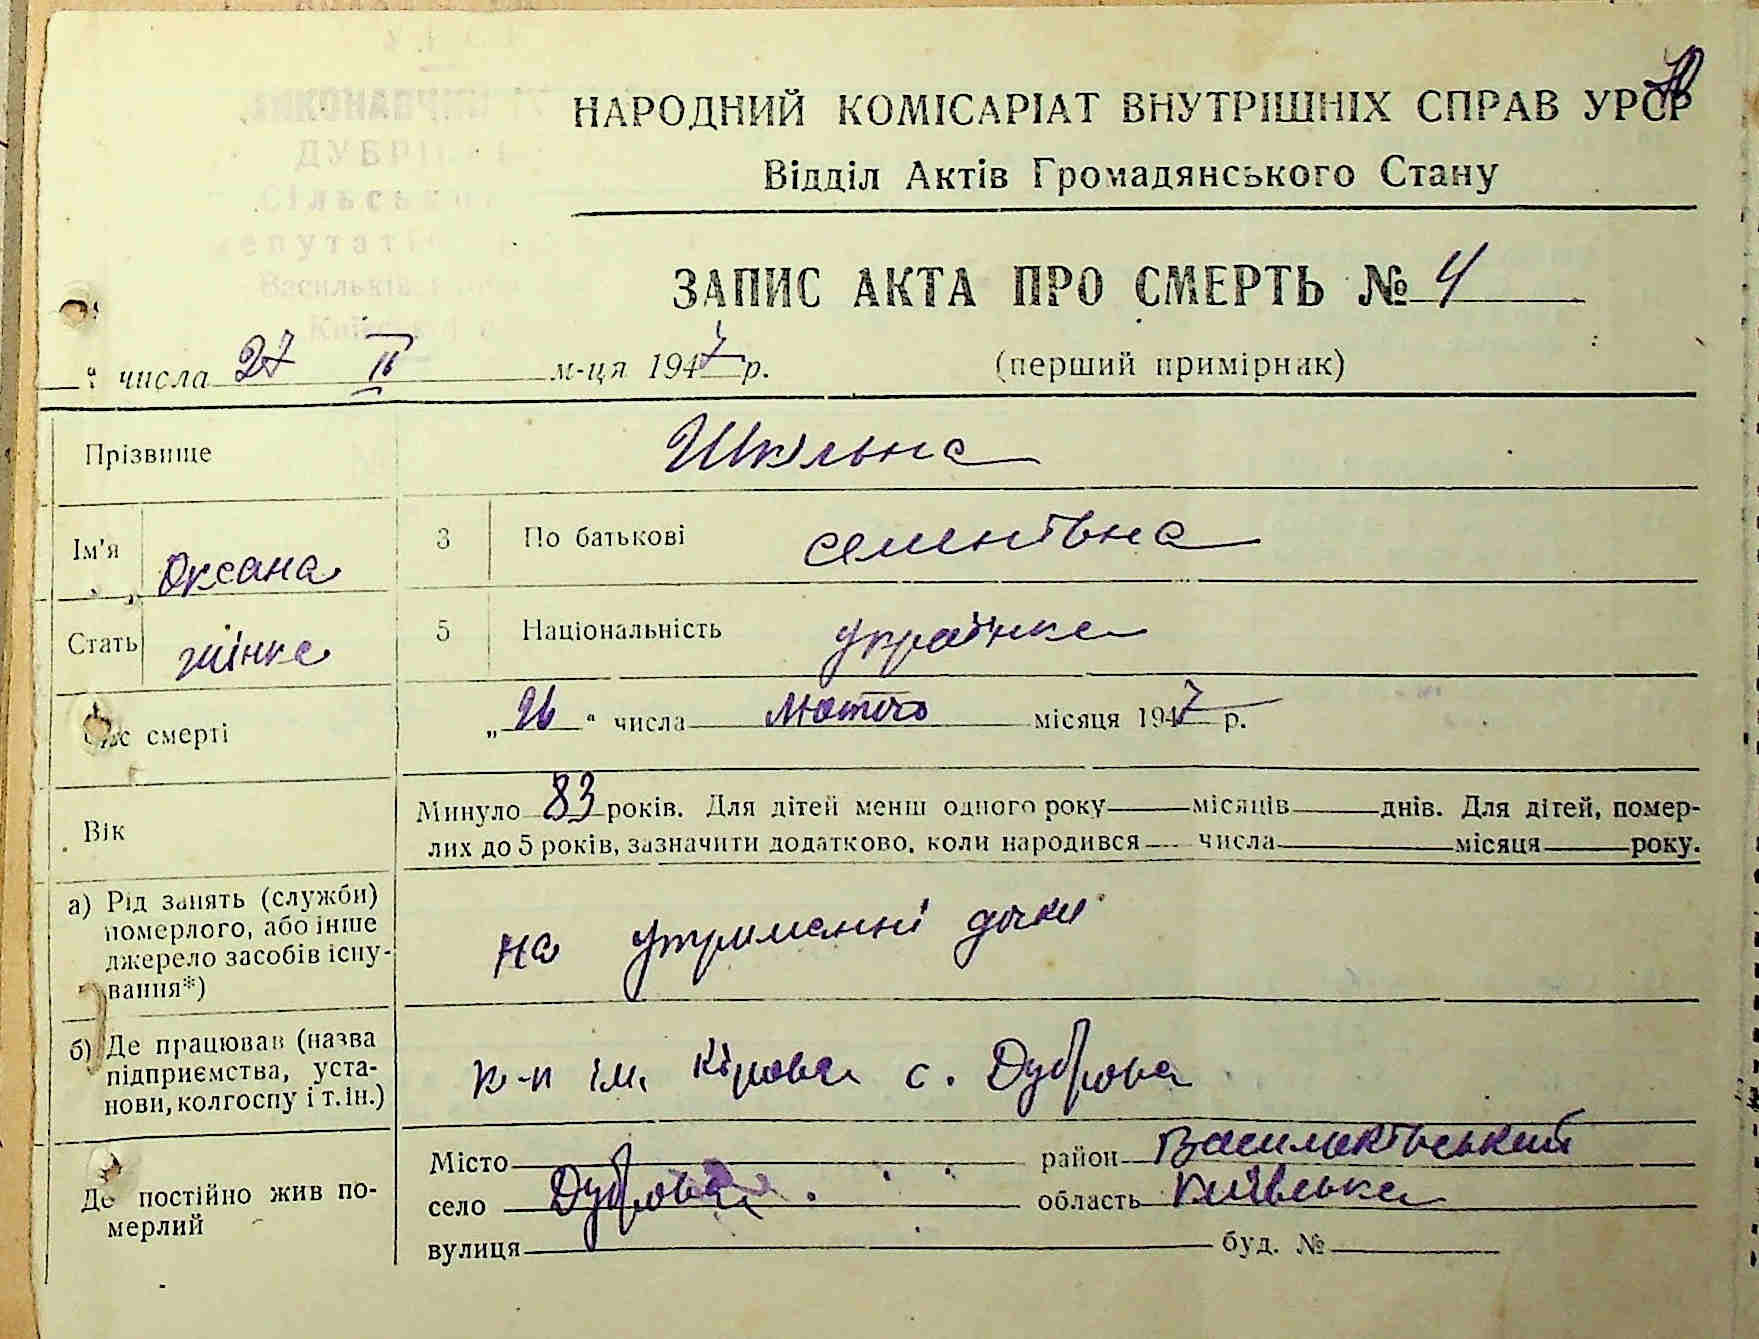 НАРОДНИЙ КОМІСАРІАТ ВНУТРІШНІХ СПРАВ УРСР
Відділ Актів Громадянського Стану
ЗАПИС АКТА ПРО СМЕРТЬ № 4
" числа 27 II м-ця 1947 р. (перший примірник)
Прізвище Шкільна
Ім'я Оксана 3 По батькові Сементівна
Стать жінка 5 Національність українка
Час смерті „ 26 " числа Лютого місяця 1947 р.
Вік
Минуло 83 років. Для дітей менш одного року місяців днів. Для дітей, помер-
лих до 5 років, зазначити додатково, коли народився числа місяця року.
а) Рід занять (служби)
померлого, або інше
джерело засобів існу-
вання*)
на утриманні дочки
б) Де працював (назва
підприємства, уста-
нови, колгоспу і т. ін.)
к-п ім. Кірова с. Дуброва
Де постійно жив по-
мерлий
Місто район Васильківський
село Дуброва область Київська
вулиця буд. №
ДУБР
Сільськ
епутат
Васильків
Київськ